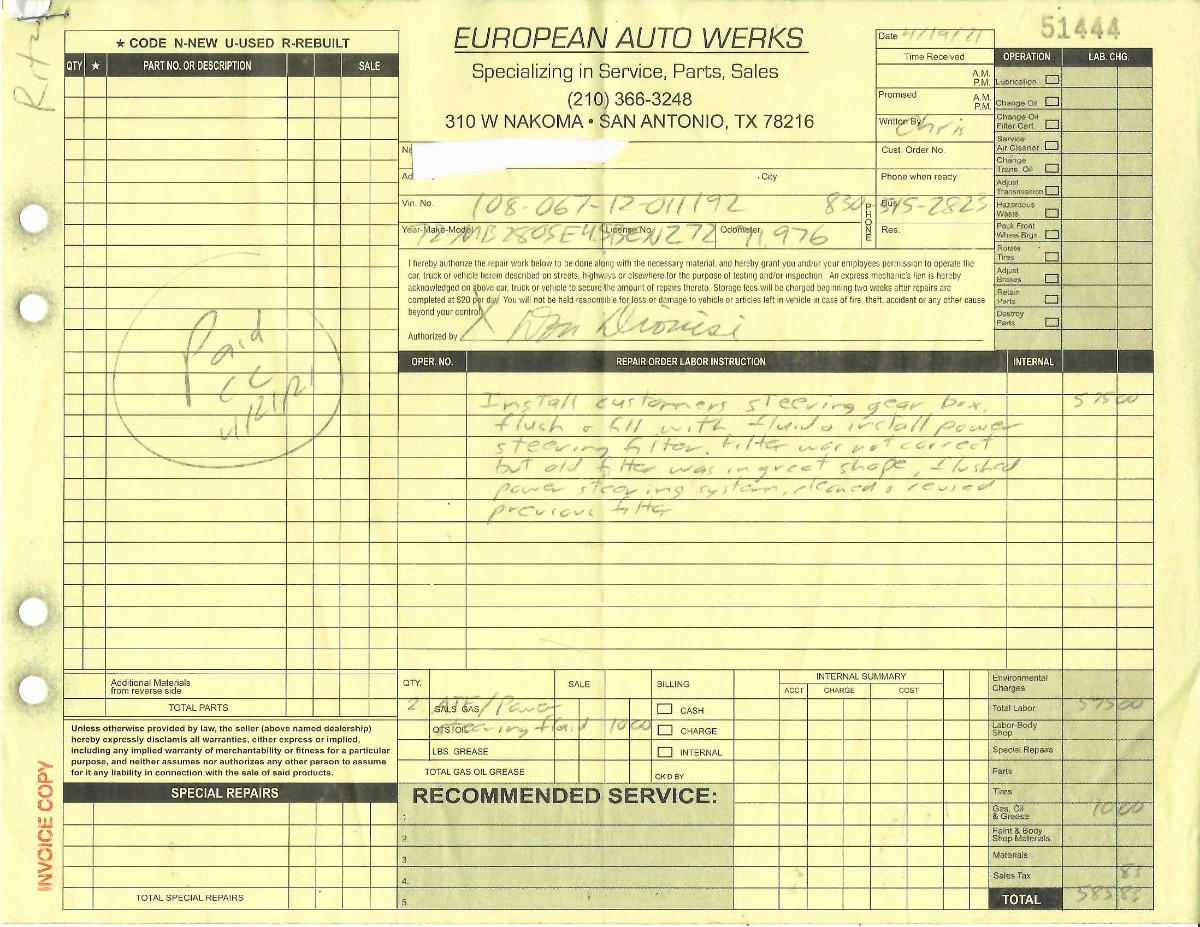 Rit
★ CODE N-NEW U-USED R-REBUILT
QTY ★ PART NO. OR DESCRIPTION SALE
EUROPEAN AUTO WERKS
Specializing in Service, Parts, Sales
(210) 366-3248
310 W NAKOMA • SAN ANTONIO, TX 78216
51444
Date 4/19/21
Time Received
A.M.
P.M.
Promised A.M.
P.M.
Written By Chris
Cust. Order No.
City
Phone when ready
Vin. No. 108-067-12-011192
830 PHONE Bus. 515-2823
Year-Make-Model 72 MB 280SE4.5 License No. BCNZ72 Odometer 71,976
Res.
OPERATION LAB. CHG.
Lubrication
Change Oil
Change Oil
Filter Cart.
Service
Air Cleaner
Change
Trans. Oil
Adjust
Transmission
Hazardous
Waste
Pack Front
Wheel Brgs.
Rotate
Tires
Adjust
Brakes
Retain
Parts
Destroy
Parts
I hereby authorize the repair work below to be done along with the necessary material, and hereby grant you and/or your employees permission to operate the
car, truck or vehicle herein described on streets, highways or elsewhere for the purpose of testing and/or inspection. An express mechanic's lien is hereby
acknowledged on above car, truck or vehicle to secure the amount of repairs thereto. Storage fees will be charged beginning two weeks after repairs are
completed at $20 per day. You will not be held responsible for loss or damage to vehicle or articles left in vehicle in case of fire, theft, accident or any other cause
beyond your control.
Authorized by X Don Dionisi
Paid
CC
4/21/21
OPER. NO. REPAIR ORDER LABOR INSTRUCTION INTERNAL
Install customers steering gear box, 575 00
flush & fill with fluid & install power
steering filter. Filter was not correct
but old filter was in great shape, flushed
power steering system, cleaned & reused
previous filter
Additional Materials
from reverse side
TOTAL PARTS
Unless otherwise provided by law, the seller (above named dealership)
hereby expressly disclaims all warranties, either express or implied,
including any implied warranty of merchantability or fitness for a particular
purpose, and neither assumes nor authorizes any other person to assume
for it any liability in connection with the sale of said products.
SPECIAL REPAIRS
TOTAL SPECIAL REPAIRS
INVOICE COPY
QTY. SALE
2 GALS. GAS ATF/Power
QTS. OIL steering fluid 10 00
LBS. GREASE
TOTAL GAS OIL GREASE
BILLING
CASH
CHARGE
INTERNAL
CK'D BY
INTERNAL SUMMARY
ACCT CHARGE COST
RECOMMENDED SERVICE:
1.
2
3
4.
5
Environmental
Charges
Total Labor 575 00
Labor-Body
Shop
Special Repairs
Parts
Tires
Gas, Oil
& Grease 10 00
Paint & Body
Shop Materials
Materials
Sales Tax 83
TOTAL 585.83